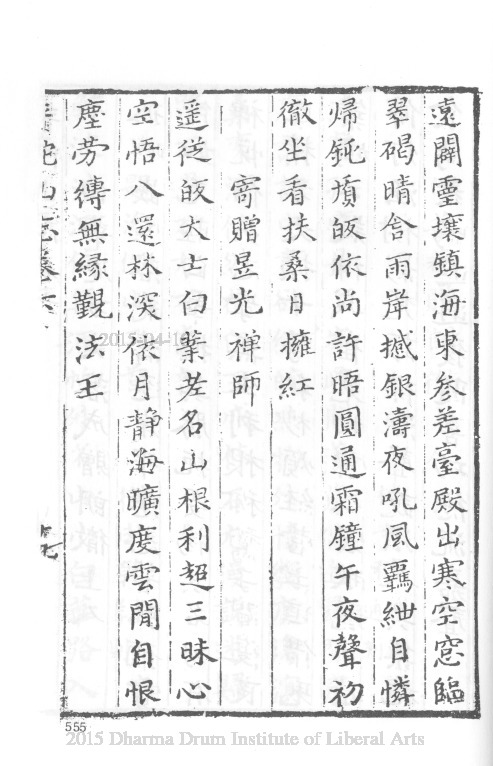 遠闢靈壤鎮海東參差臺殿出寒空窓臨
翠碣晴含雨岸撼銀濤夜吼風羈紲自憐
歸鈍墳皈依尚許晤圓通霜鐘午夜聲初
徹坐看扶桑日擁紅
寄贈昱光禪師
遥從皈大士白業老名山根利超三昧心
空悟八還林深依月静海曠度雲閒自恨
塵劳縛無緣觀法王
555
2015 Dharma Drum Institute of Liberal Arts